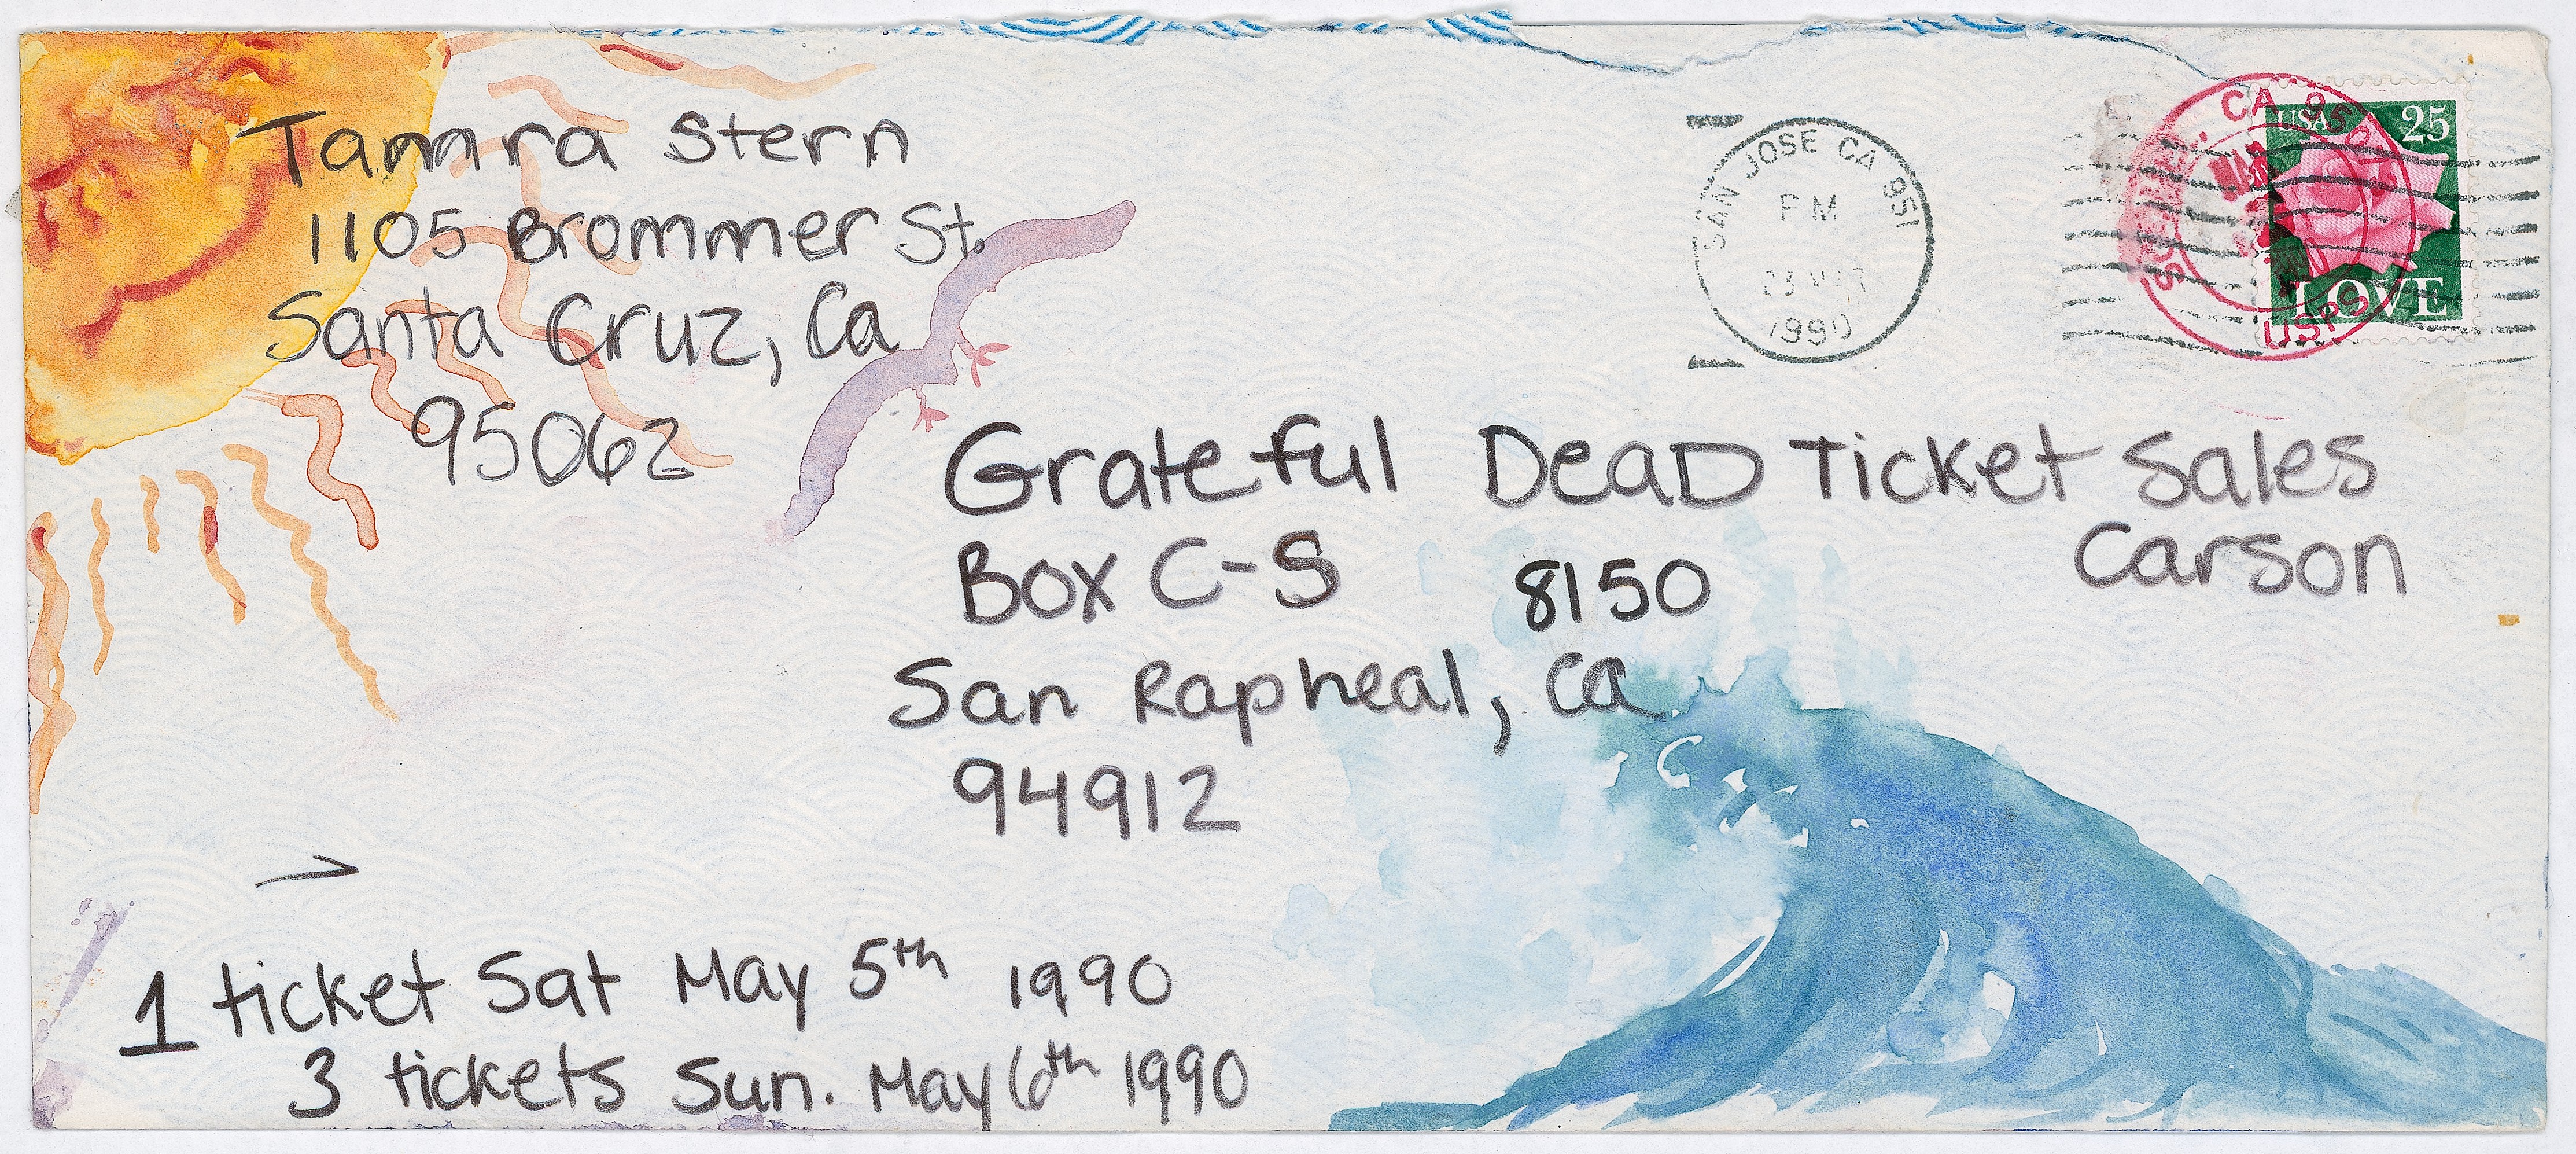 Tamara Stern
1105 Brommer St.
Santa Cruz, Ca
95062
SAN JOSE CA 951
PM
1990
CA 950
USPS
USA 25
LOVE
Grateful DeaD Ticket Sales
Carson
Box C-S 8150
San Rapheal, Ca
94912
1 ticket Sat May 5th 1990
3 tickets Sun. May 6th 1990